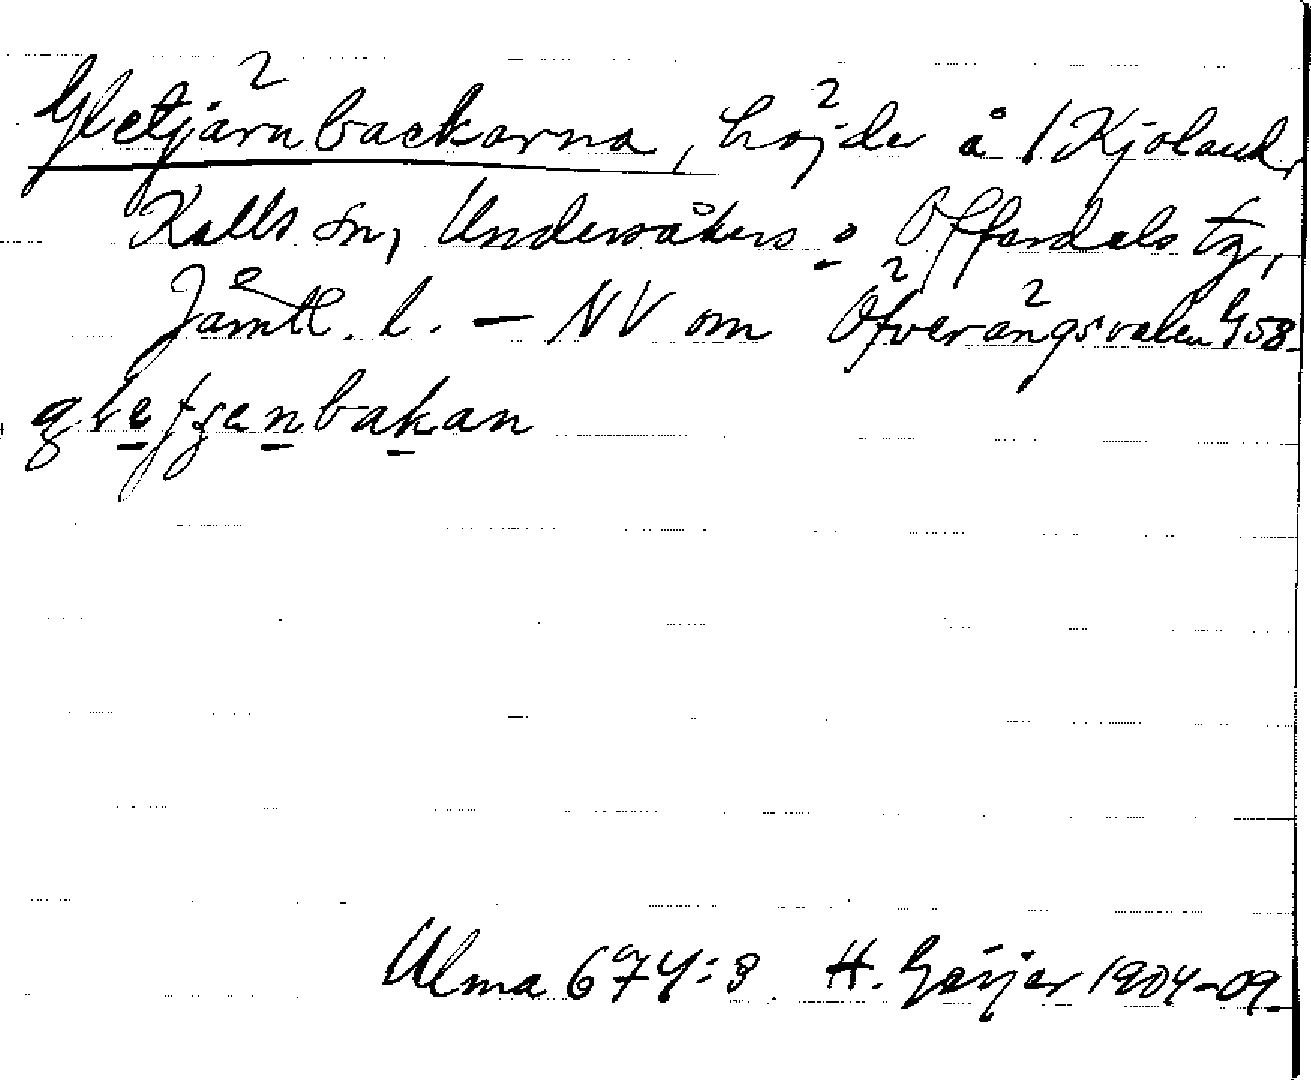 Gletjärnbackarna, höjder å / Kjoland,
Kalls sn, Undersåkers o Offerdals tg,
Jämtl. l. – NV om Öfverängsvalen G58.
Ulma 674:3 H. Geijer 1904-09.